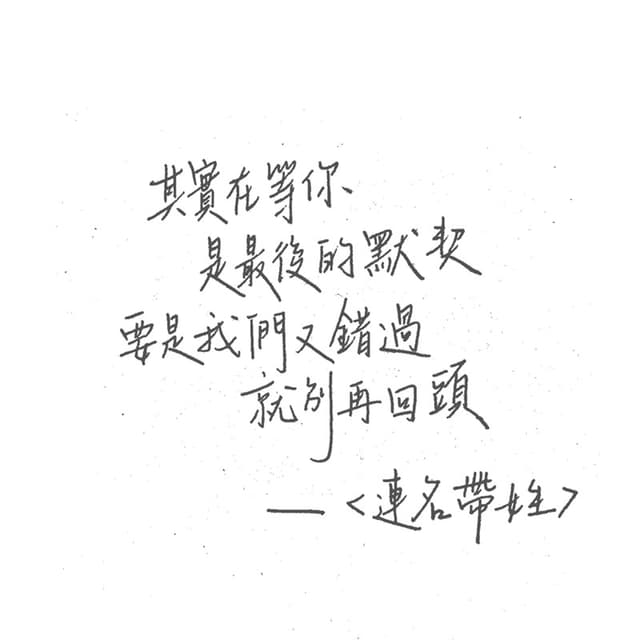 其實在等你、
是最後的默契
要是我們又錯過
就別再回頭
—〈連名帶姓〉